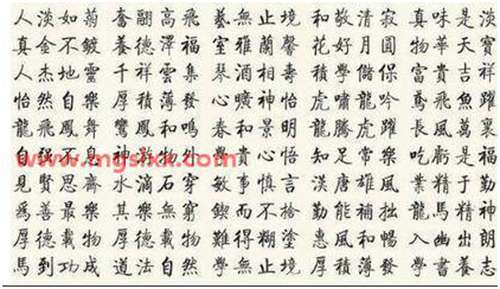 人淡如菊 奮翮高飛 藝無止境 和敬清寂 真味是淡
真金不鍍 養德澤福 室雅蘭馨 花好月圓 物華天寶
人杰地靈 千祥雲集 琴 相壽 積學儲 富貴吉祥
怡然自樂 厚積薄發 心曠神怡 虎嘯龍吟 鳶飛魚躍
龍飛鳳舞 鸞鳳和鳴 春和景明 龍騰虎躍 長風萬裏
自強不息 神游物外 學貴心悟 知足常樂 吃虧是福
見賢思齊 水滴石穿 敏事慎言 漢唐雄風 業精于勤
爲善最樂 其樂無窮 鍥而不捨 勤能補拙 龍馬精神
厚德載物 難得糊塗 惠風和暢 入幽出朗
馬到功成 道法自然 學無止境 厚積薄發 學書養志
www.mgslxx.com